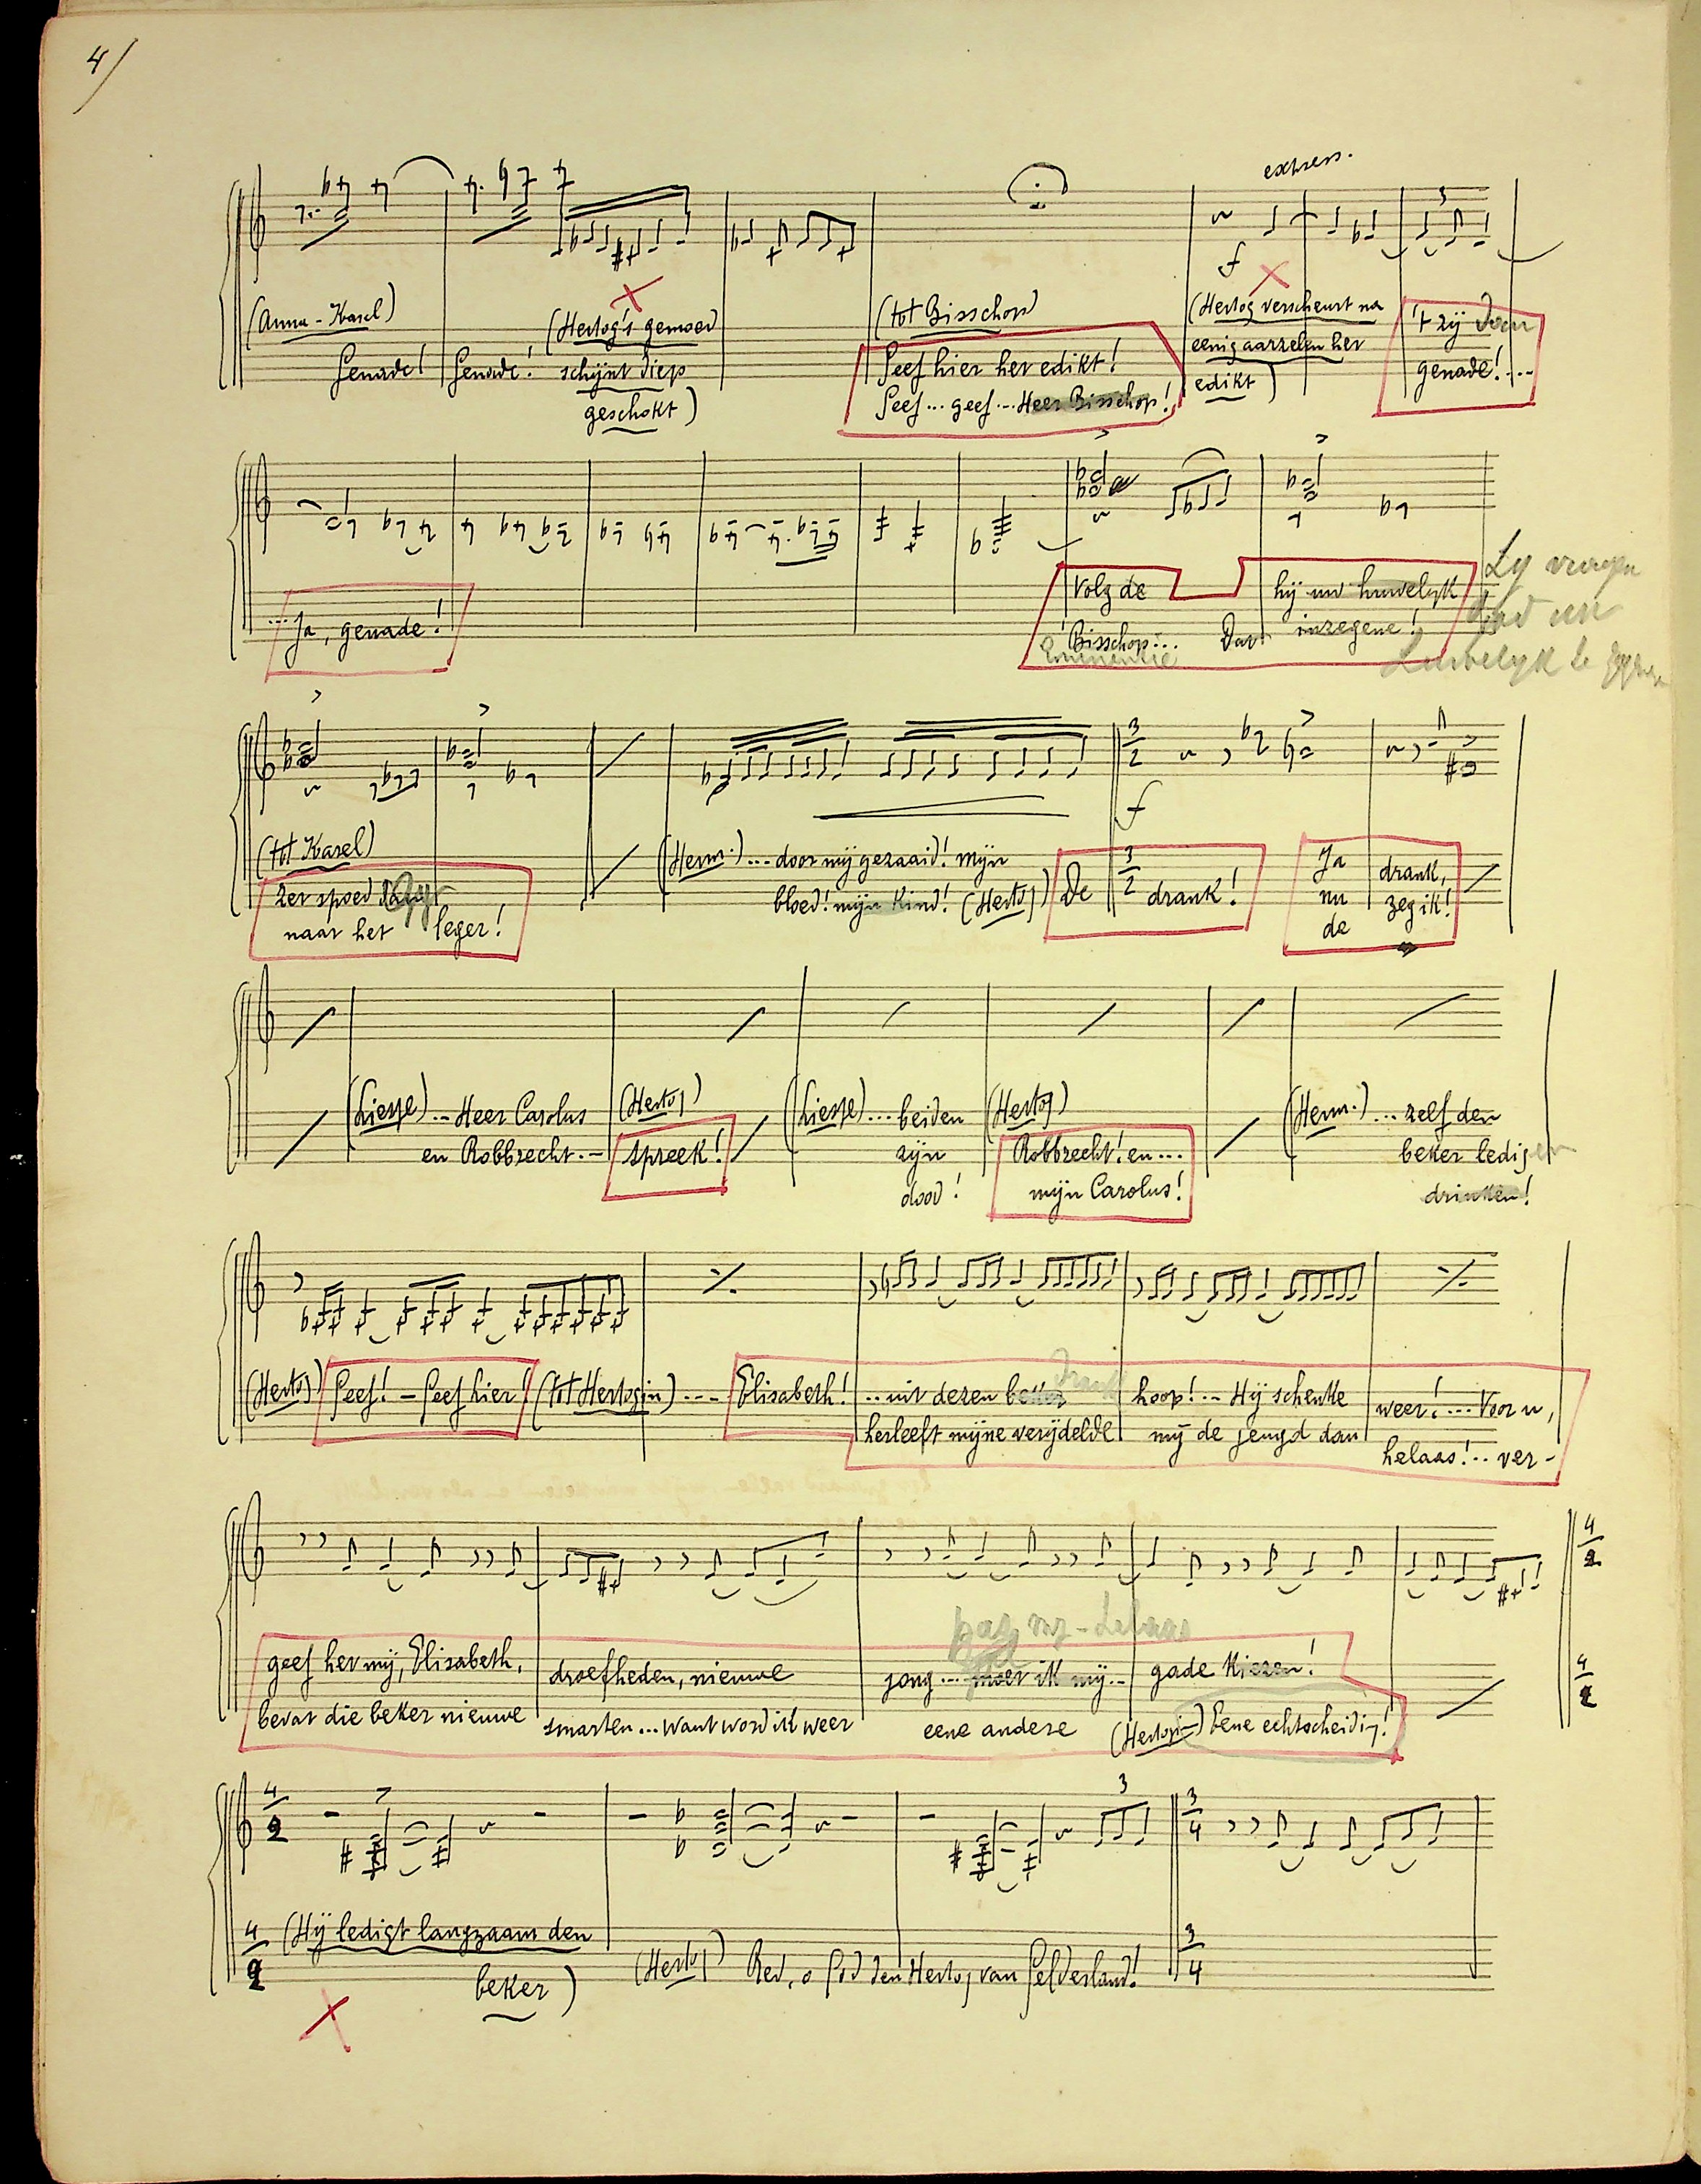 4/
express.
f
(Anna - Karel)
Genade! Genade!
(Hertog's gemoed
schijnt diep
geschokt)
(tot Bisschop)
Geef hier het edikt!
Geef... geef... Heer Bisschop!
(Hertog verscheurt na
eenig aarzelen het
edikt)
't zij dan
genade!....
... Ja, genade!
Volg de
Bisschop...
Eminentie
Dat hij uw huwelijk
inzegene!
(tot Karel)
Zer spoed
naar het leger!
(Herm.) ... door mij gezaaid! mijn
bloed! mijn kind! (Hertog)
f
3/2
De drank!
Ja nu de drank, zeg ik!
(Liesje) ... Heer Carolus
en Robbrecht.-
(Hertog)
spreek!
(Liesje) ... beiden
zijn
dood!
(Hertog)
Robbrecht! en ...
mijn Carolus!
(Herm.) ... zelf den
beker ledigen
drinken!
(Hertog) Geef! - Geef hier! (tot Hertogin) ---- Elisabeth!
.. uit dezen beker
drank
herleeft mijne verijdelde
hoop! .. Hij schenke
mij de jeugd dan
weer! .... Voor u,
helaas!.. ver-
4/2
geef het mij, Elisabeth,
bevat die beker nieuwe
droefheden, nieuwe
smarten... want word ik weer
jong ... moet ik mij ..
eene andere
gade kiezen!
(Hertogin) Eene echtscheiding!
4/2
3
3/4
(Hij ledigt langzaam den
beker)
(Hertog) Red, o God den Hertog van Gelderland!
3/4